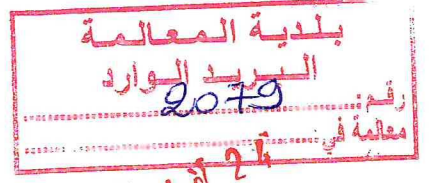 بلدية المعالمة
البريد الوارد
رقم: 2079
معالمة في: 24